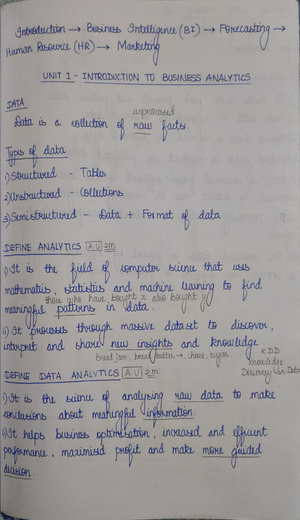 Introduction → Business Intelligence (BI) → Forecasting →
Human Resource (HR) → Marketing
UNIT 1 - INTRODUCTION TO BUSINESS ANALYTICS
DATA
unprocessed
Data is a collection of raw facts.
Types of data
i) Structured - Tables
2) Unstructured - Collections
3) Semistructured - Data + Format of data
DEFINE ANALYTICS A.U 2m
i) It is the field of computer science that uses
mathematics, statistics and machine learning to find
those who have bought x also bought y
meaningful patterns in data.
ii) It processes through massive dataset to discover,
interpret and share new insights and knowledge.
bread jam, bread butter →, cheese, sugar
KDD
Knowledge
Discovery in Data
DEFINE DATA ANALYTICS A.U 2m
i) It is the science of analysing raw data to make
conclusions about meaningful information.
ii) It helps business optimisation, increased and efficient
performance, maximised profit and make more guided
decision.